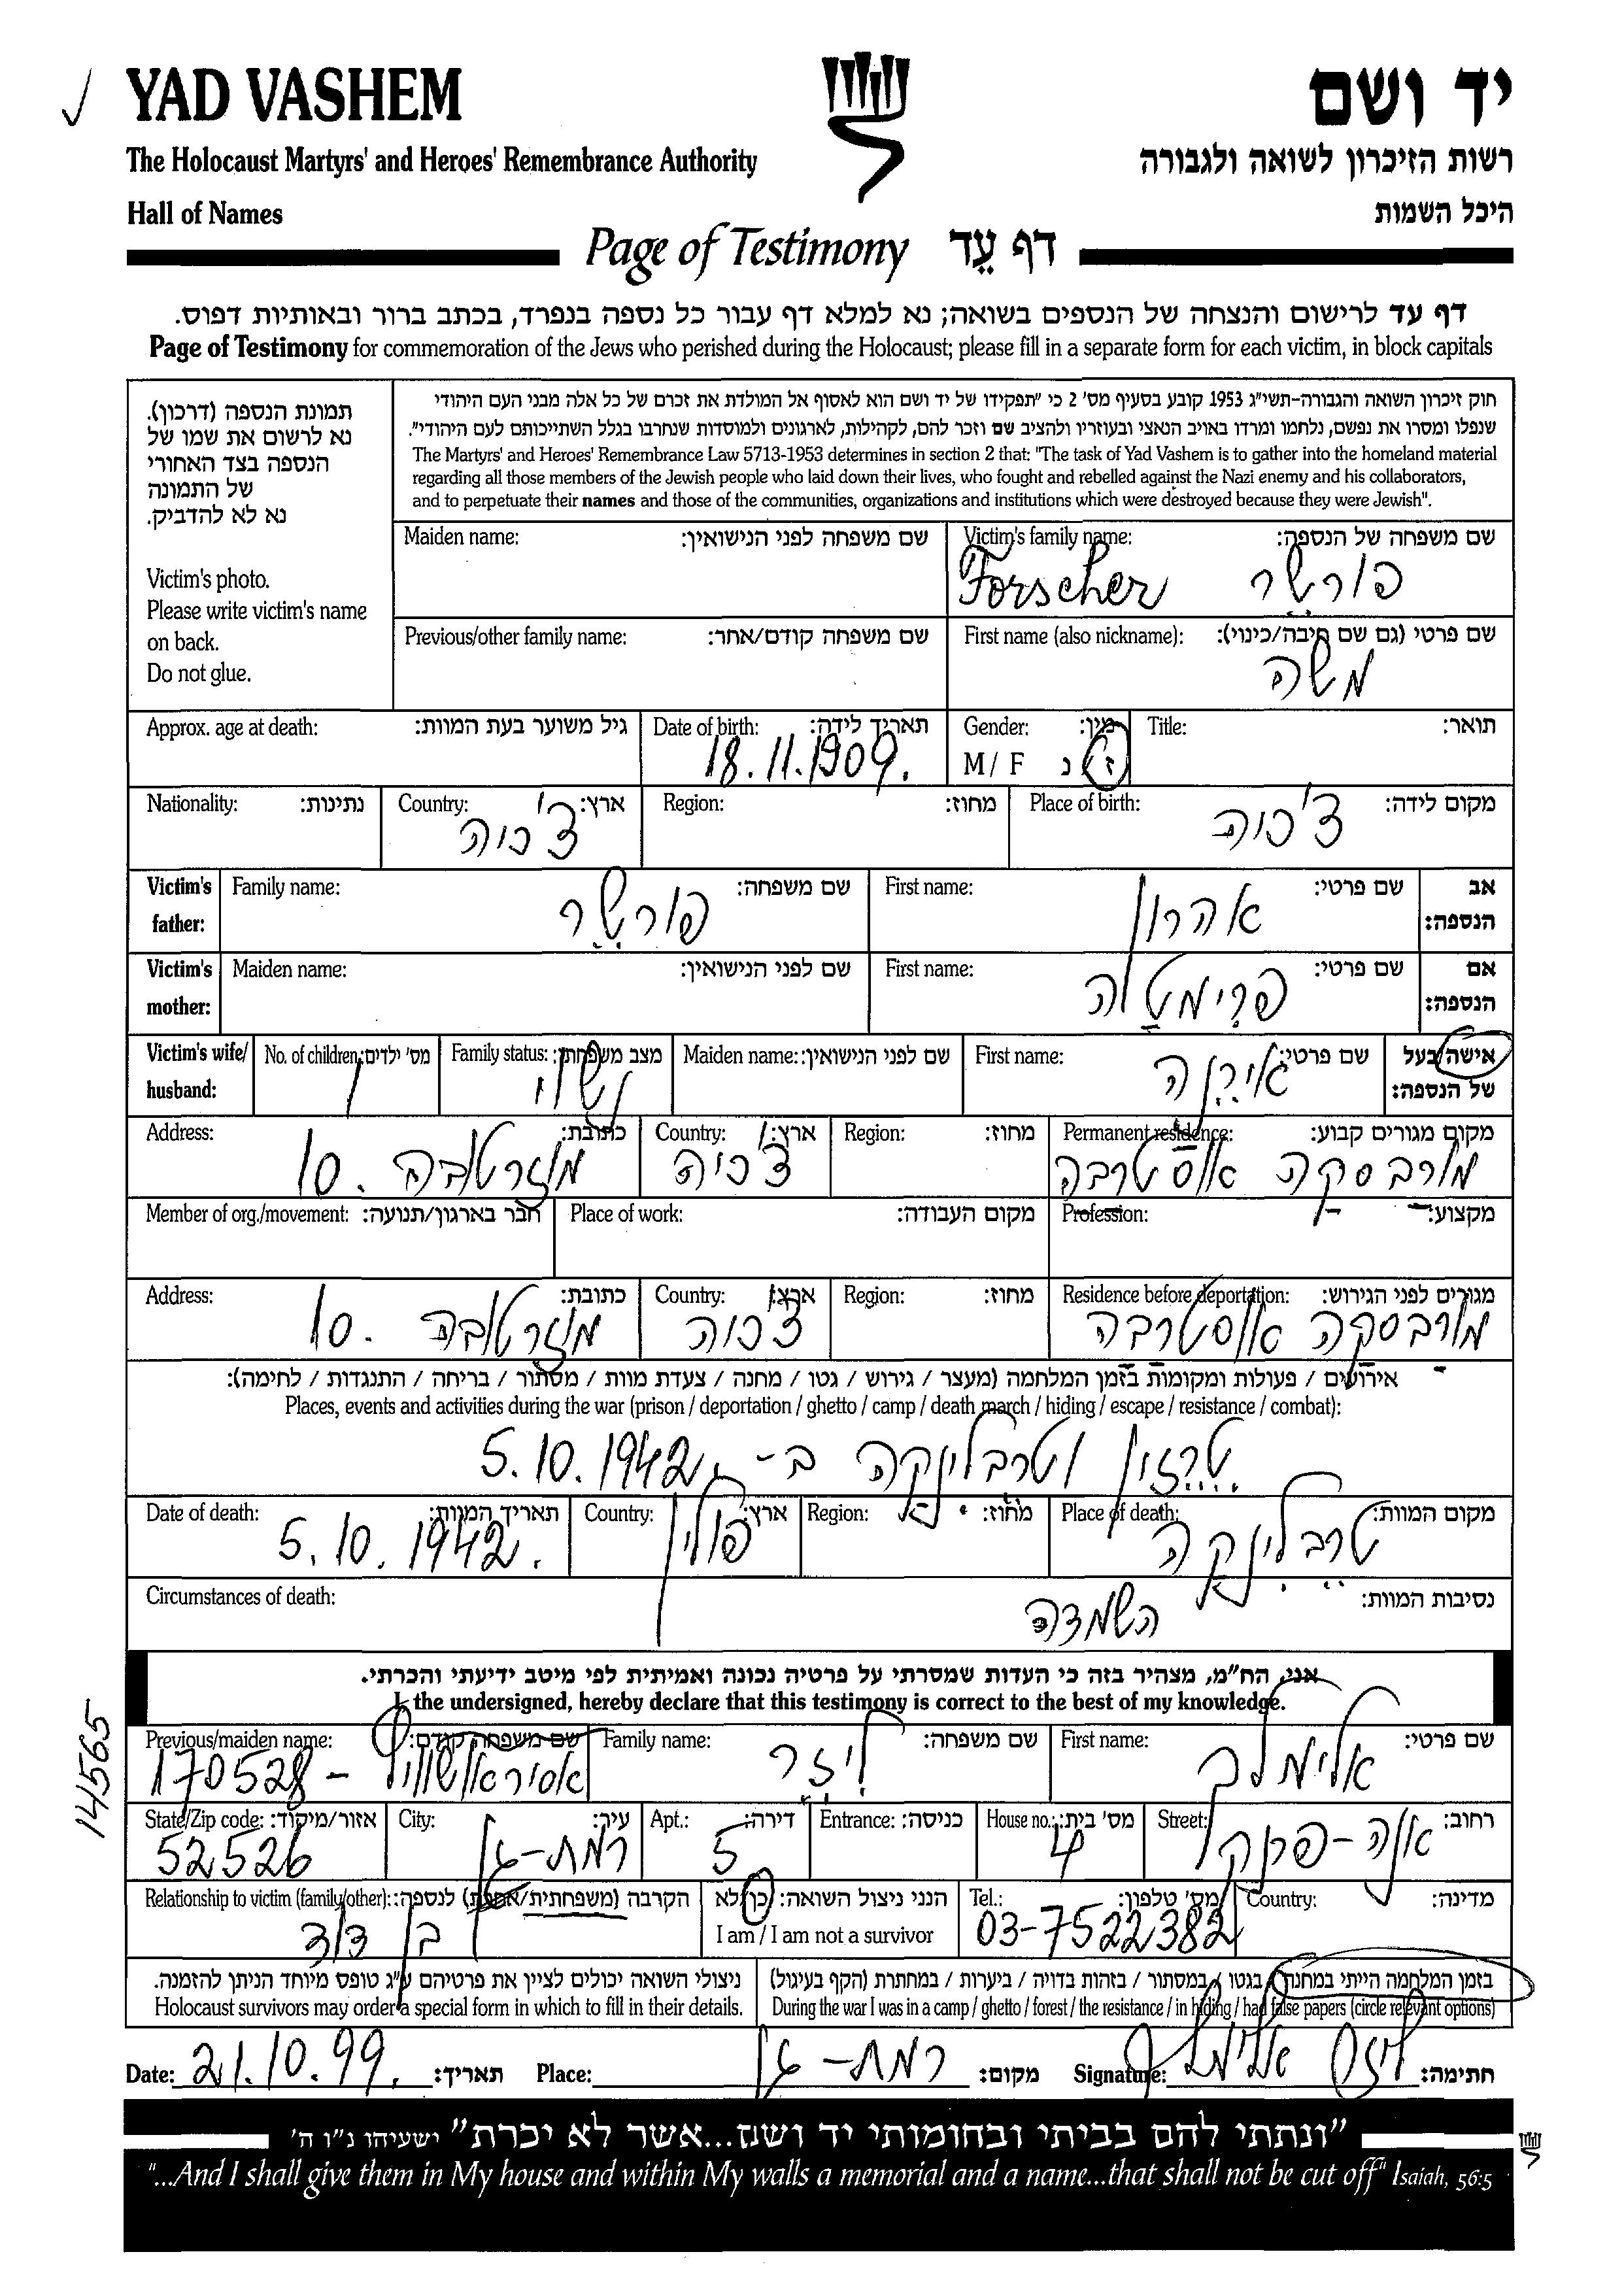 YAD VASHEM
יד ושם
The Holocaust Martyrs' and Heroes' Remembrance Authority
רשות הזיכרון לשואה ולגבורה
Hall of Names
היכל השמות
Page of Testimony דף עֵד
דף עד לרישום והנצחה של הנספים בשואה; נא למלא דף עבור כל נספה בנפרד, בכתב ברור ובאותיות דפוס.
Page of Testimony for commemoration of the Jews who perished during the Holocaust; please fill in a separate form for each victim, in block capitals
תמונת הנספה (דרכון).
נא לרשום את שמו של
הנספה בצד האחורי
של התמונה
נא לא להדביק.
Victim's photo.
Please write victim's name
on back.
Do not glue.
חוק זיכרון השואה והגבורה-תשי"ג 1953 קובע בסעיף מס' 2 כי "תפקידו של יד ושם הוא לאסוף אל המולדת את זכרם של כל אלה מבני העם היהודי
שנפלו ומסרו את נפשם, נלחמו ומרדו באויב הנאצי ובעוזריו ולהציב שם וזכר להם, לקהילות, לארגונים ולמוסדות שנחרבו בגלל השתייכותם לעם היהודי".
The Martyrs' and Heroes' Remembrance Law 5713-1953 determines in section 2 that: "The task of Yad Vashem is to gather into the homeland material
regarding all those members of the Jewish people who laid down their lives, who fought and rebelled against the Nazi enemy and his collaborators,
and to perpetuate their names and those of the communities, organizations and institutions which were destroyed because they were Jewish".
Maiden name: שם משפחה לפני הנישואין: Victim's family name: שם משפחה של הנספה:
Forscher פורשר
Previous/other family name: שם משפחה קודם/אחר: First name (also nickname): שם פרטי (גם שם חיבה/כינוי):
משה
Approx. age at death: גיל משוער בעת המוות: Date of birth: תאריך לידה: Gender: מין: Title: תואר:
18.11.1909. M / F ז נ
Nationality: נתינות: Country: ארץ: Region: מחוז: Place of birth: מקום לידה:
צ'כיה צ'כיה
Victim's father: Family name: שם משפחה: First name: שם פרטי: אב הנספה:
פורשר אהרון
Victim's mother: Maiden name: שם לפני הנישואין: First name: שם פרטי: אם הנספה:
פרימטלה
Victim's wife/ husband: No. of children: מס' ילדים: Family status: מצב משפחתי: Maiden name: שם לפני הנישואין: First name: שם פרטי: אישה/בעל של הנספה:
1 נשוי אירנה
Address: כתובת: Country: ארץ: Region: מחוז: Permanent residence: מקום מגורים קבוע:
10. צ'כיה מורבסקה אוסטרבה
Member of org./movement: חבר בארגון/תנועה: Place of work: מקום העבודה: Profession: מקצוע:
Address: כתובת: Country: ארץ: Region: מחוז: Residence before deportation: מגורים לפני הגירוש:
10. צ'כיה מורבסקה אוסטרבה
אירועים / פעולות ומקומות בזמן המלחמה (מעצר / גירוש / גטו / מחנה / צעדת מוות / מסתור / בריחה / התנגדות / לחימה):
Places, events and activities during the war (prison / deportation / ghetto / camp / death march / hiding / escape / resistance / combat):
טרזין וטרבלינקה ב- 5.10.1942.
Date of death: תאריך המוות: Country: ארץ: Region: מחוז: Place of death: מקום המוות:
5.10.1942. פולין טרבלינקה
Circumstances of death: נסיבות המוות:
השמדה
אני, הח"מ, מצהיר בזה כי העדות שמסרתי על פרטיה נכונה ואמיתית לפי מיטב ידיעתי והכרתי.
I, the undersigned, hereby declare that this testimony is correct to the best of my knowledge.
Previous/maiden name: שם משפחה קודם: Family name: שם משפחה: First name: שם פרטי:
אסיר אושוויץ - 170528 ליזר אלימלך
State/Zip code: אזור/מיקוד: City: עיר: Apt.: דירה: Entrance: כניסה: House no.: מס' בית: Street: רחוב:
52526 רמת-גן 5 4 אנה-פרנק
Relationship to victim (family/other): הקרבה (משפחתית/אחרת) לנספה: הנני ניצול השואה: כן/לא Tel.: מס' טלפון: Country: מדינה:
בן דוד I am / I am not a survivor 03-7522382
ניצולי השואה יכולים לציין את פרטיהם ע"ג טופס מיוחד הניתן להזמנה. בזמן המלחמה הייתי במחנה / בגטו / במסתור / בזהות בדויה / ביערות / במחתרת (הקף בעיגול)
Holocaust survivors may order a special form in which to fill in their details. During the war I was in a camp / ghetto / forest / the resistance / in hiding / had false papers (circle relevant options)
Date: 21.10.99. תאריך: Place: רמת-גן מקום: Signature: ליזר אלימלך חתימה:
14565
"ונתתי להם בביתי ובחומותי יד ושם...אשר לא יכרת" ישעיהו נ"ו ה'
"...And I shall give them in My house and within My walls a memorial and a name...that shall not be cut off" Isaiah, 56:5